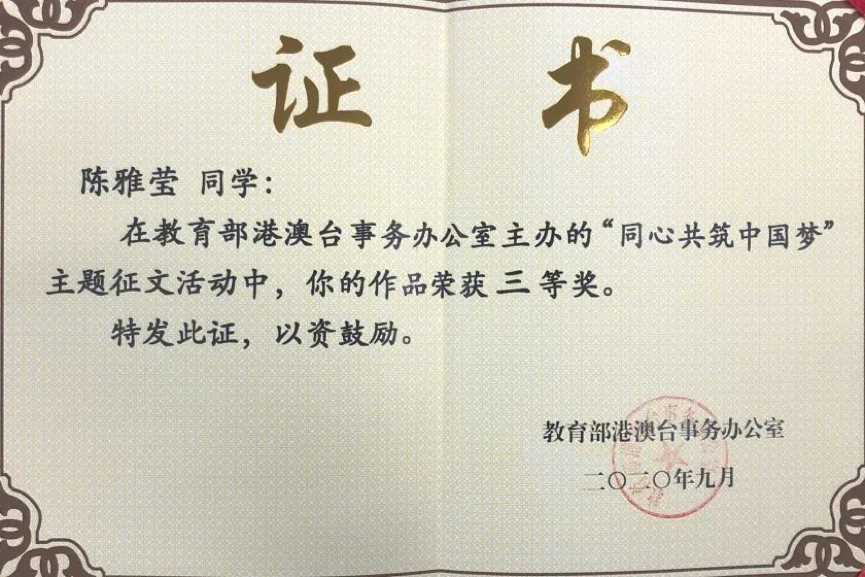 证书
陈雅莹 同学：
在教育部港澳台事务办公室主办的“同心共筑中国梦”
主题征文活动中，你的作品荣获 三 等奖。
特发此证，以资鼓励。
教育部港澳台事务办公室
二〇二〇年九月